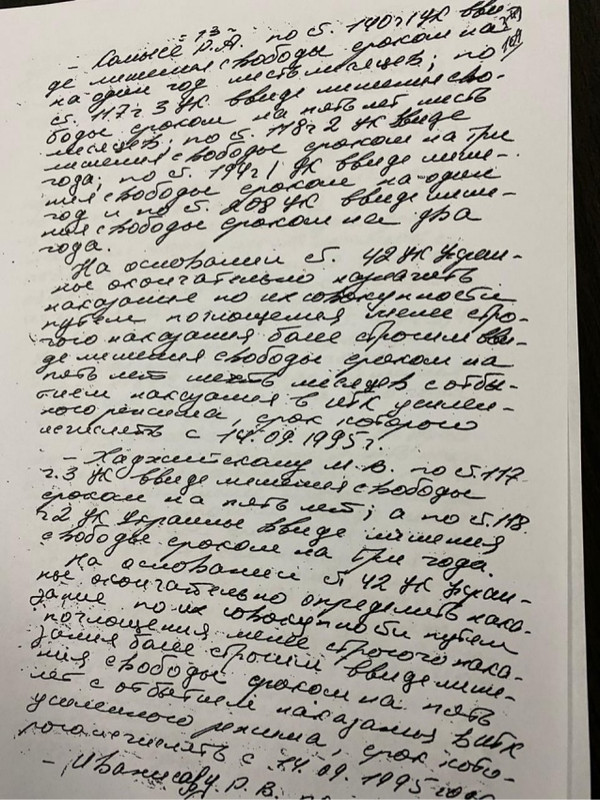 - 13 -
- Р.А. по ст. 140 ч 1 УК вви-
де лишения свободы сроком на
на один год шесть месяцев; по
ст. 117 ч 3 УК ввиде лишения сво-
боды сроком на пять лет шесть
месяцев; по ст. 118 ч 2 УК ввиде
лишения свободы сроком на три
года; по ст. ч 1 УК ввиде лише-
ния свободы сроком на один
год и по ст. 208 УК ввиде лише-
ния свободы сроком на два
года.
На основании ст. 42 УК Украи-
ны окончательно назначить
наказание по их совокупности
путем поглощения менее стро-
гого наказания более строгим вви-
де лишения свободы сроком на
пять лет шесть месяцев с отбы-
тием наказания в ИТК усилен-
ного режима, срок которого
исчислять с 14.09.1995 г.
- М.В. по ст. 117
ч. 3 УК ввиде лишения свободы
сроком на пять лет; а по ст. 118
ч 2 УК Украины ввиде лишения
свободы сроком на три года.
На основании ст 42 УК Украи-
ны окончательно определить нака-
зание по их совокупности путем
поглощения менее строгого нака-
зания более строгим ввиде лише-
ния свободы сроком на пять
лет с отбытием наказания в ИТК
усиленного режима, срок кото-
рого исчислять с 14.09.1995 года
- Р.В.